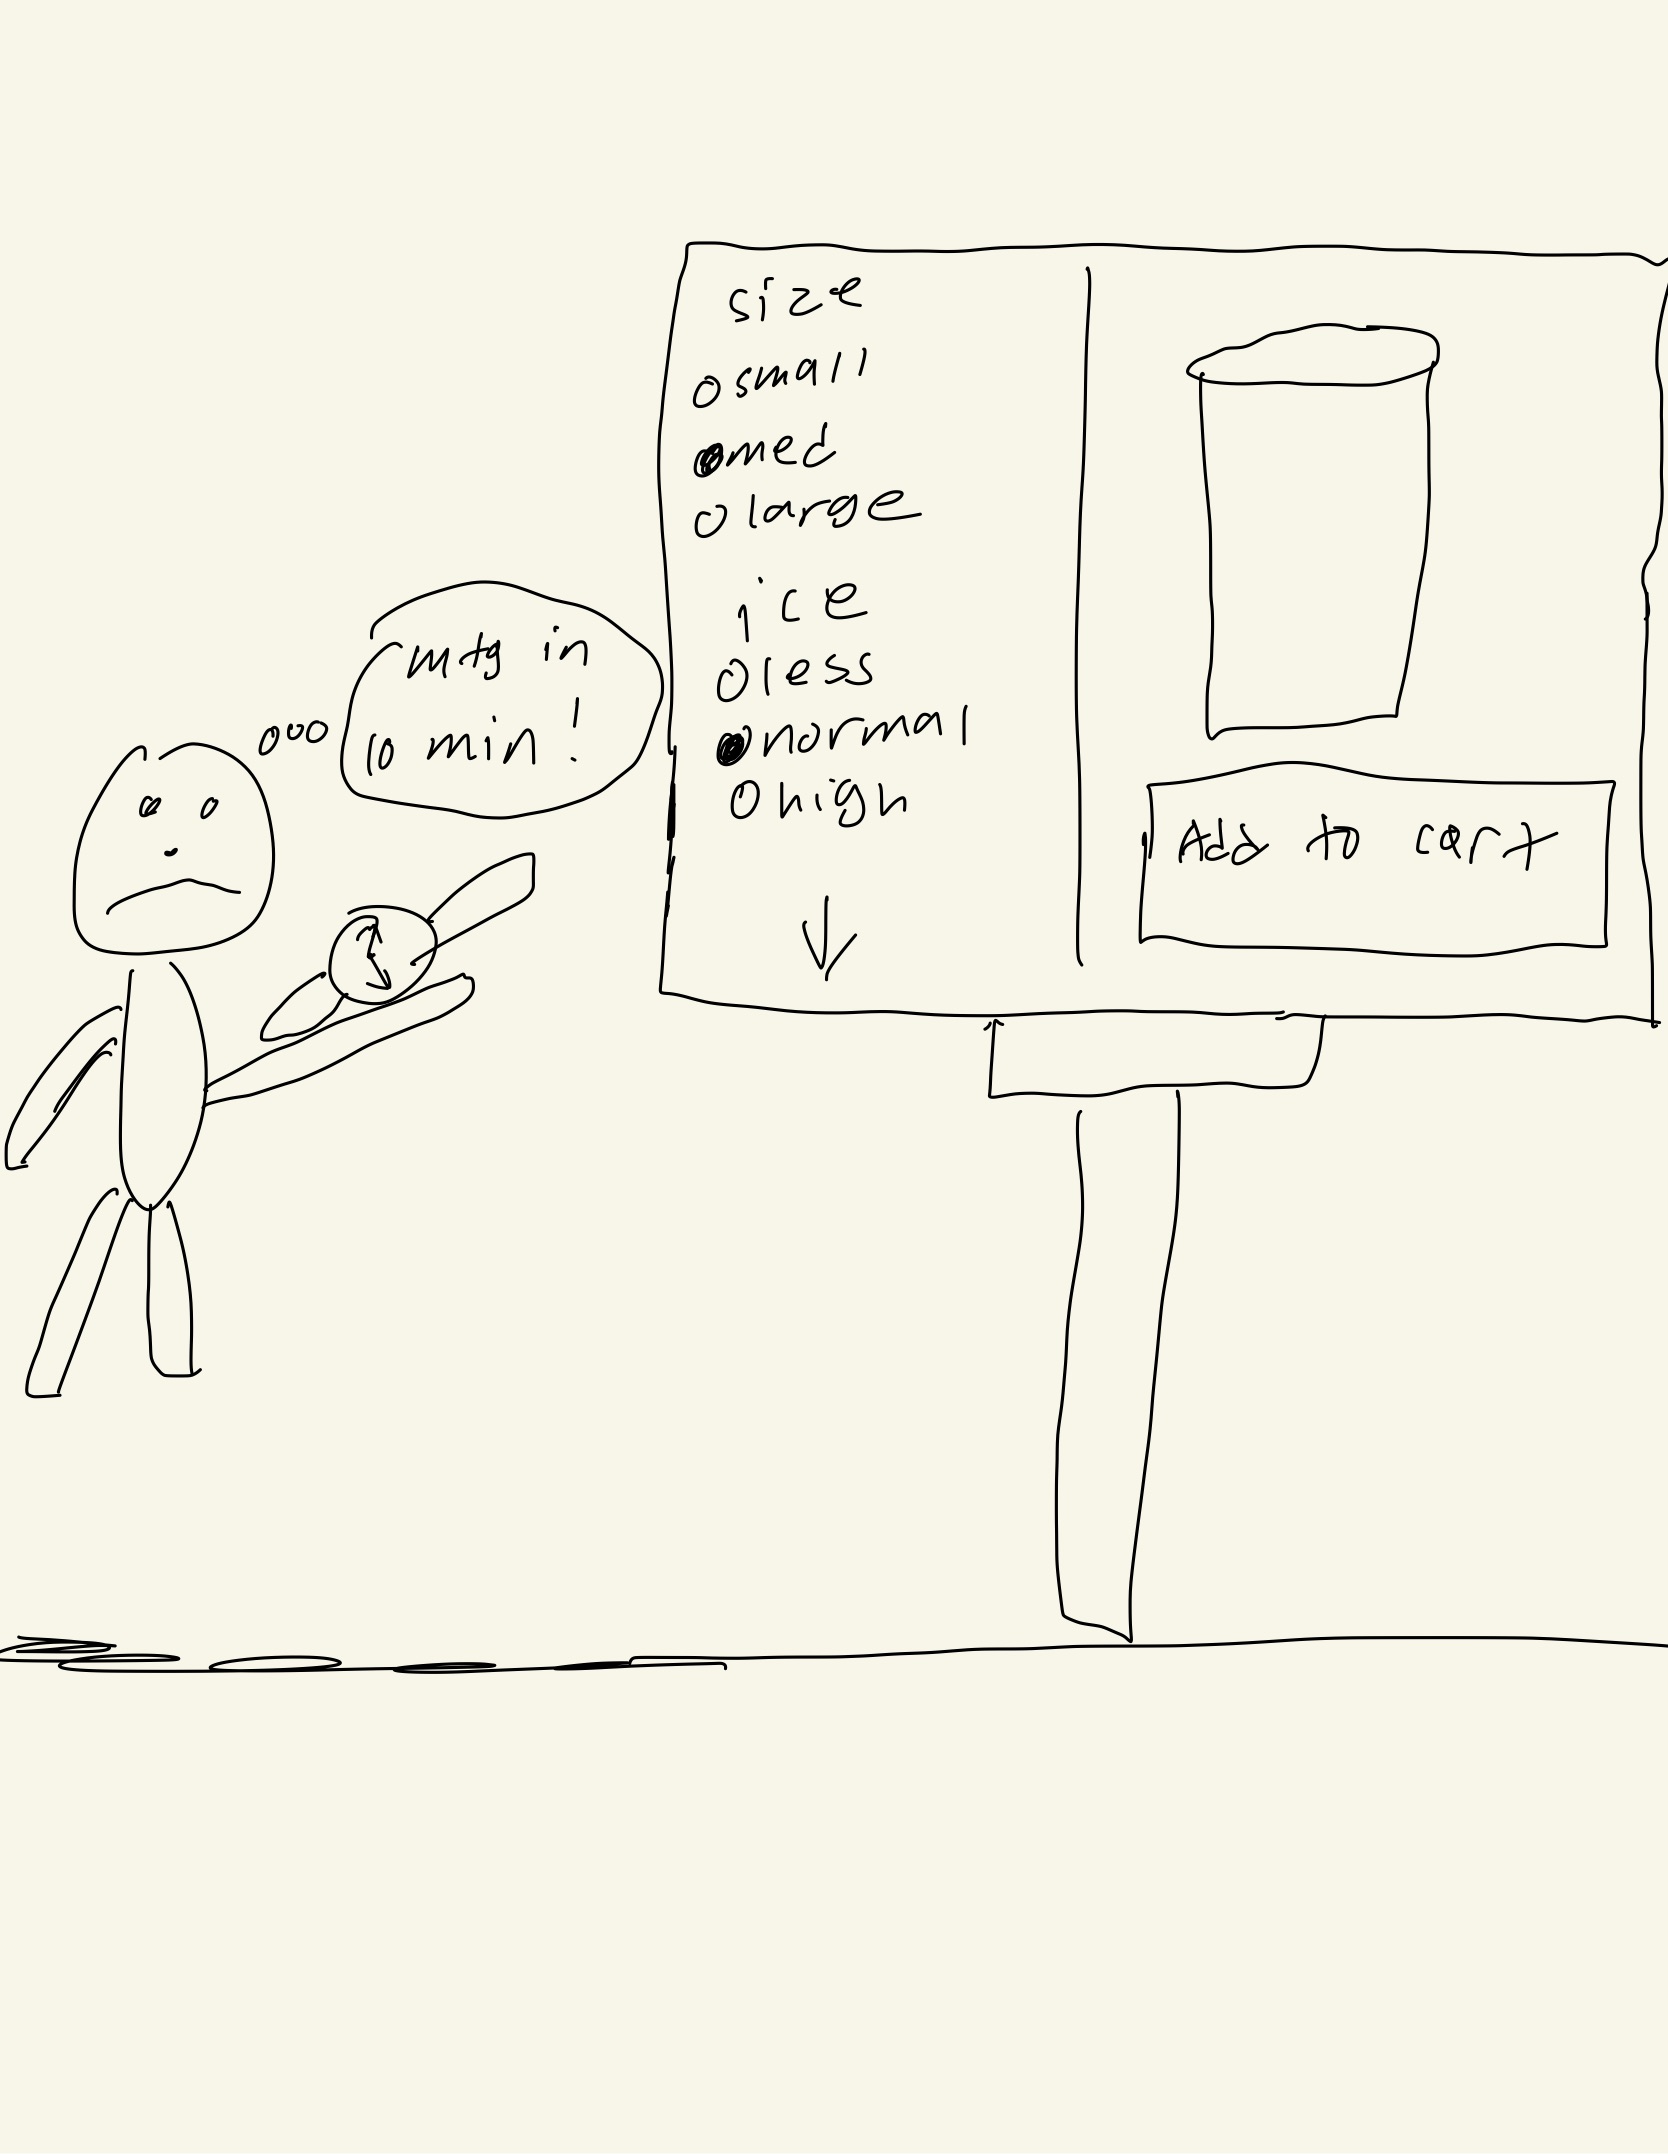 mtg in
10 min!
size
small
med
large
ice
less
normal
high
Add to cart